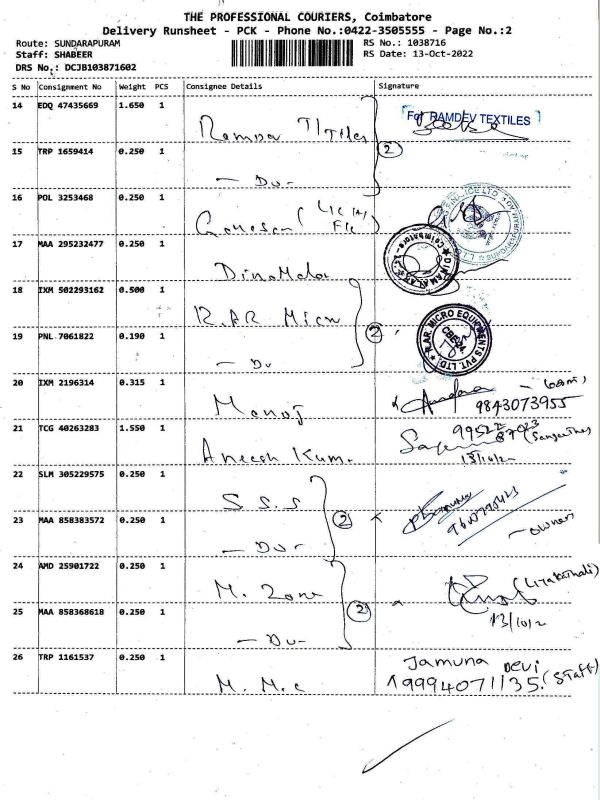 THE PROFESSIONAL COURIERS, Coimbatore
Delivery Runsheet - PCK - Phone No.:0422-3505555 - Page No.:2
Route: SUNDARAPURAM
Staff: SHABEER
DRS No.: DCJB103871602
RS No.: 1038716
RS Date: 13-Oct-2022
S No Consignment No Weight PCS Consignee Details Signature
14 EDQ 47435669 1.650 1
For RAMDEV TEXTILES
15 TRP 1659414 0.250 1
2
- Do -
16 POL 3253468 0.250 1
Ganesan
17 MAA 295232477 0.250 1
18 IXM 502293162 0.500 1
R.AR Micro
R.AR. MICRO EQUIPMENTS PVT. LTD.
19 PNL 7061822 0.190 1
2
- Do
20 IXM 2196314 0.315 1
Manoj
9843073955
21 TCG 40263283 1.550 1
Aneesh Kum.
22 SLM 305229575 0.250 1
S.S.S
23 MAA 858383572 0.250 1
2
- Do -
owner
24 AMD 25901722 0.250 1
M. Zone
25 MAA 858368618 0.250 1
2
13/10/2
- Do -
26 TRP 1161537 0.250 1
Jamuna Devi
(Staff)
9994071135.
M. M. C